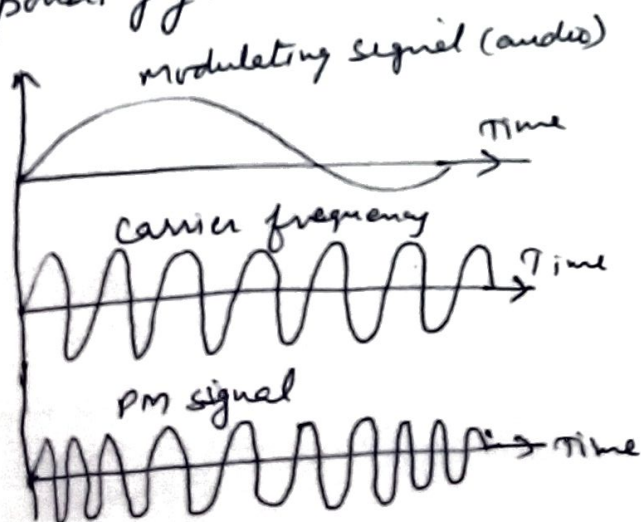 Modulating signal (audio)
Time
Carrier frequency
Time
PM signal
Time